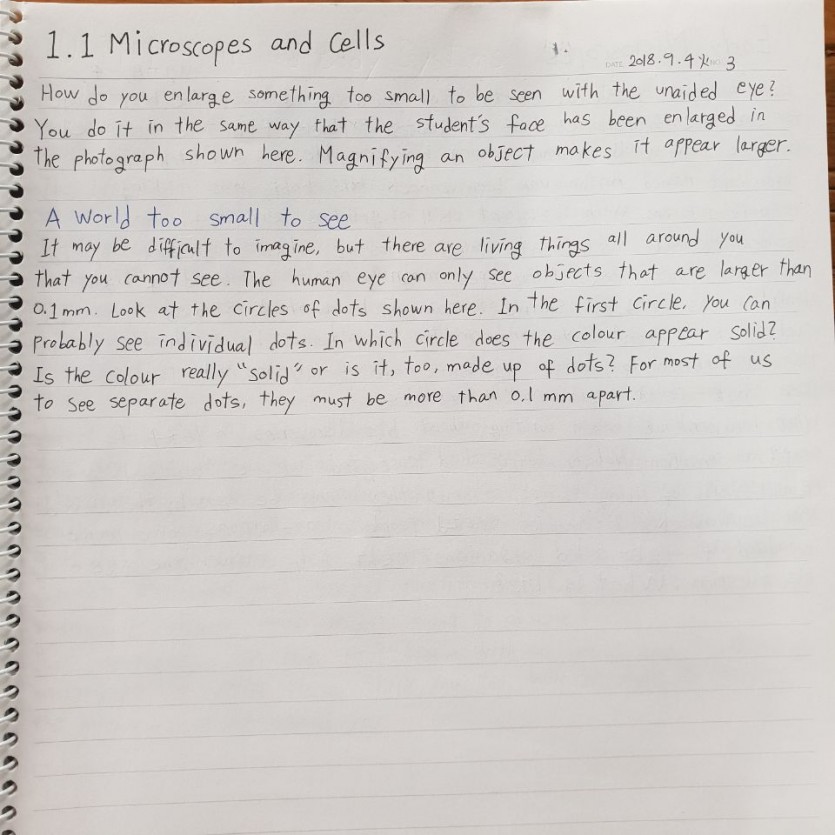 1.1 Microscopes and Cells
1.
DATE 2018.9.4 火 NO. 3
How do you enlarge something too small to be seen with the unaided eye?
You do it in the same way that the student's face has been enlarged in
the photograph shown here. Magnifying an object makes it appear larger.
A World too small to see
It may be difficult to imagine, but there are living things all around you
that you cannot see. The human eye can only see objects that are larger than
0.1mm. Look at the circles of dots shown here. In the first circle, you can
probably see individual dots. In which circle does the colour appear solid?
Is the colour really "solid" or is it, too, made up of dots? For most of us
to see separate dots, they must be more than 0.1 mm apart.